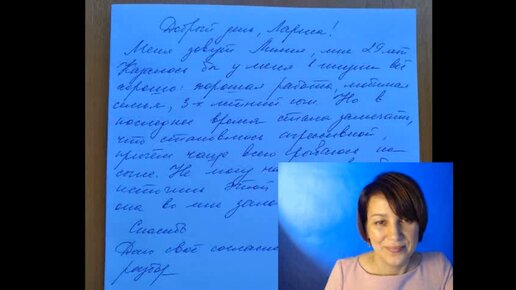 Добрый день, Лариса!
Меня зовут Лилия, мне 29 лет
Казалось бы у меня в жизни всё
хорошо: хорошая работа, любимая
семья, 3-х летний сын. Но в
последнее время стала замечать,
что становлюсь агрессивной,
причём чаще всего срываюсь на
сыне. Не могу
источник этой
она во мне
Спасибо
Даю своё согласие
разбор